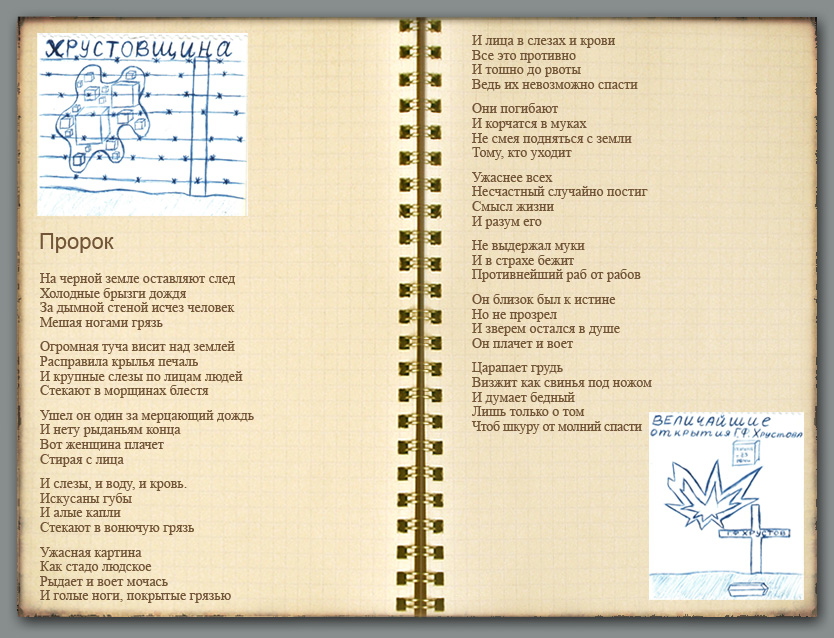 ХРУСТОВЩИНА
Пророк
На черной земле оставляют след
Холодные брызги дождя
За дымной стеной исчез человек
Мешая ногами грязь
Огромная туча висит над землей
Расправила крылья печаль
И крупные слезы по лицам людей
Стекают в морщинах блестя
Ушел он один за мерцающий дождь
И нету рыданьям конца
Вот женщина плачет
Стирая с лица
И слезы, и воду, и кровь.
Искусаны губы
И алые капли
Стекают в вонючую грязь
Ужасная картина
Как стадо людское
Рыдает и воет мочась
И голые ноги, покрытые грязью
И лица в слезах и крови
Все это противно
И тошно до рвоты
Ведь их невозможно спасти
Они погибают
И корчатся в муках
Не смея подняться с земли
Тому, кто уходит
Ужаснее всех
Несчастный случайно постиг
Смысл жизни
И разум его
Не выдержал муки
И в страхе бежит
Противнейший раб от рабов
Он близок был к истине
Но не прозрел
И зверем остался в душе
Он плачет и воет
Царапает грудь
Визжит как свинья под ножом
И думает бедный
Лишь только о том
Чтоб шкуру от молний спасти
ВЕЛИЧАЙШИЕ
открытия Г.Ф. Хрустова
Г.Ф ХРУСТОВ